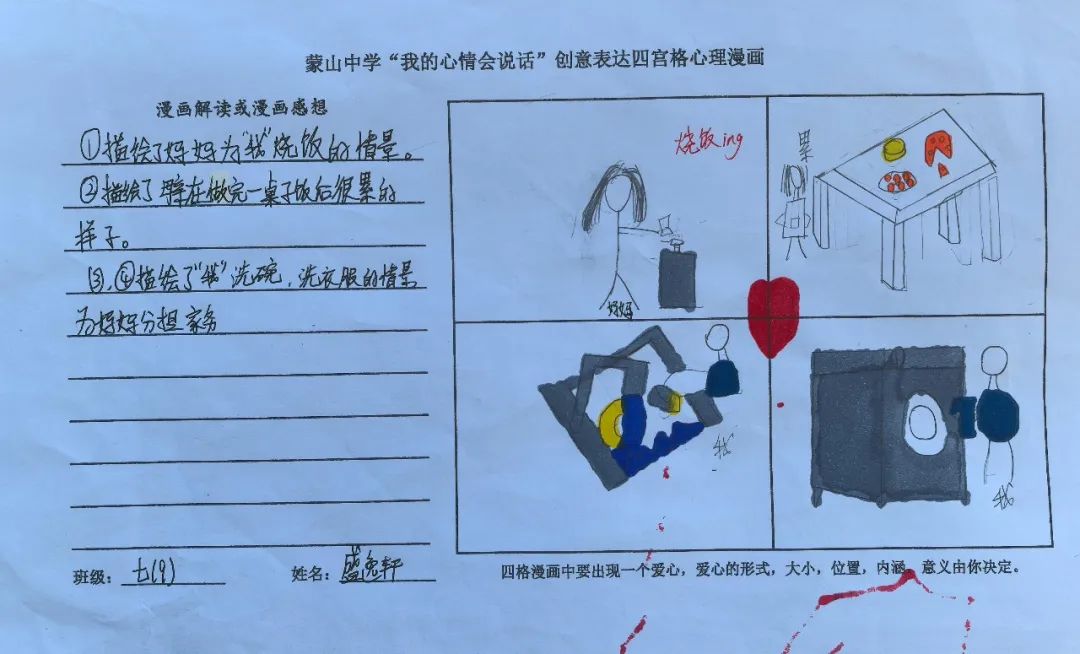 蒙山中学“我的心情会说话”创意表达四宫格心理漫画
漫画解读或漫画感想
①描绘了妈妈为“我”烧饭的情景。
②描绘了 在做完一桌子饭后很累的
样子。
③、④描绘了“我”洗碗、洗衣服的情景
为妈妈分担家务
班级：七(9)
姓名：盛 轩
烧饭ing
妈妈
累
我
我
四格漫画中要出现一个爱心，爱心的形式，大小，位置，内涵，意义由你决定。